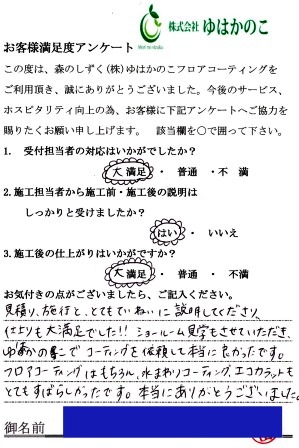 株式会社 ゆはかのこ
お客様満足度アンケート
この度は、森のしずく(株)ゆはかのこフロアコーティングを
ご利用頂き、誠にありがとうございました。今後のサービス、
ホスピタリティ向上の為、お客様に下記アンケートへご協力を
賜りたくお願い申し上げます。 該当欄を〇で囲って下さい。
1. 受付担当者の対応はいかがでしたか？
大満足 ・ 普通 ・ 不満
2. 施工担当者から施工前・施工後の説明は
しっかりと受けましたか？
はい ・ いいえ
3. 施工後の仕上がりはいかがですか？
大満足 ・ 普通 ・ 不満
お気付きの点がございましたら、ご記入ください。
見積り、施行と、とてもていねいに説明してくださり、
仕上りも大満足でした!! ショールーム見学もさせていただき、
ゆはかのこでコーティングを依頼して本当に良かったです。
フロアコーティングはもちろん、水まわりコーティング、エコカラットも
とてもすばらしかったです。本当にありがとうございました。
御名前